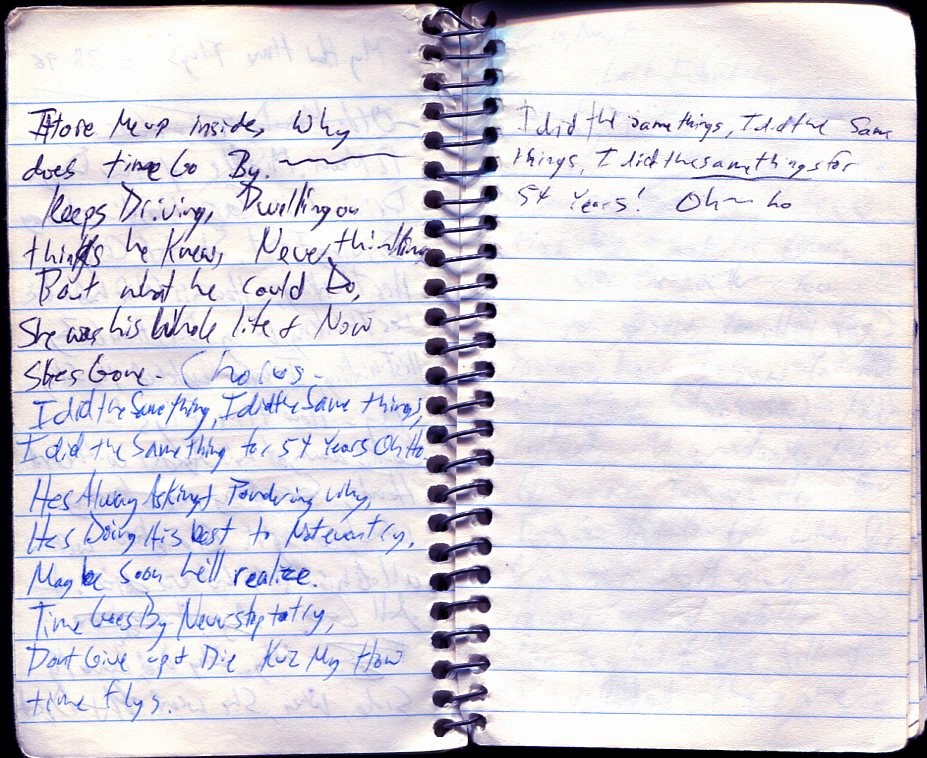 It tore Me up inside, Why
does time Go By.
Keeps Driving, Dwelling on
things he Knew, Never thinking
Bout what he could Do,
She was his Whole life & Now
Shes Gone -
I did the Same thing, I did the Same things,
I did the Same thing for 54 Years Oh Ho.
Hes Alway Asking & Pondering why,
Hes Doing His best to Not even try,
Maybe Soon he'll realize.
Time Goes By Never stop to try,
Dont Give up & Die Kuz My How
time flys.
I did the same things, I did the Same
things, I did the same things for
54 Years! Oh Ho